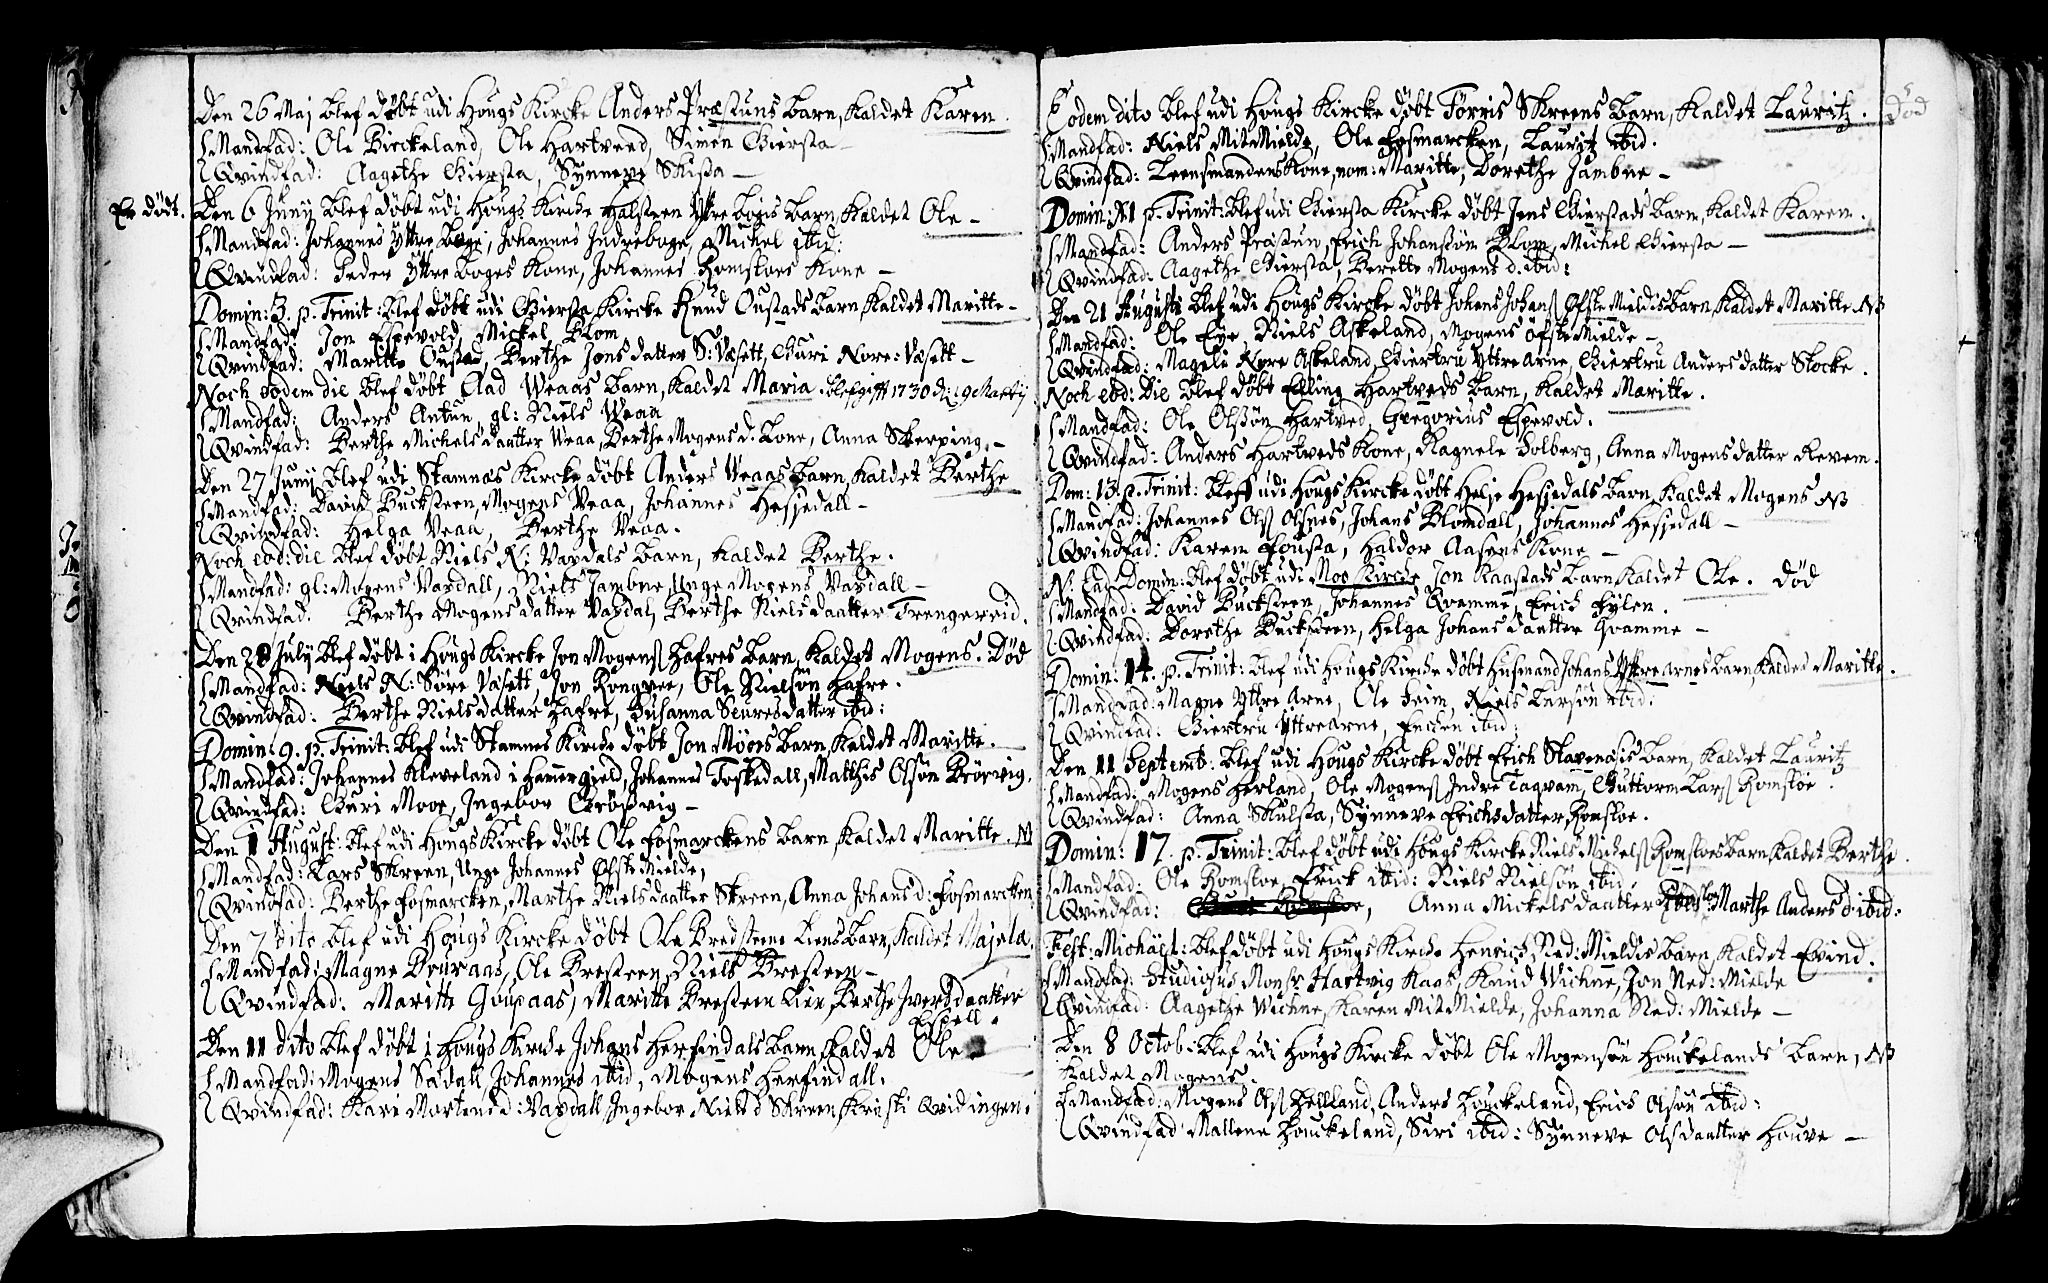 Den 26 Maj blef døbt udi Hougs Kircke Anders Præstuns barn, kaldet Karen.
Mandfad: Ole Birckeland, Ole Hartveed, Simen Giersta —
Qvindfad: Aagethe Giersta, Synneve Skista —
Er død. Den 6 Junÿ blef døbt udi Hougs Kircke Halsteen Ytre bogis barn, kaldet Ole —
Mandfad: Johannes Yttre boge, Johannes Indreboge, Michel ibid:
Qvindfad: Peder Yttre boges Kone, Johannes Romsloes Kone —
Domin: 3. p. Trinit: blef døbt udi Giersta Kircke Knud Oustads barn, kaldet Maritte —
Mandfad: Jon Espevold, Mickel Blom
Qvindfad: Maritte Oustad, Berthe Jons datter S: Væsett, Guri Nore: Væsett —
Noch eodem die blef døbt Elad Weaas barn, kaldet Maria. blef gift 1730 d: 19 Martij
Mandfad: Anders Antun, gl: Niels Weaa
Qvindfad: Berthe Michels daatter Weaa, Berthe Mogens d. Lone, Anna Skerping. —
Den 27 Junÿ blef udi Stamnæs Kircke døbt Anders Veaas barn, kaldet Berthe
Mandfad: David Bucksteen, Mogens Veaa, Johannes Hessjedall —
Qvindfad: Helga Veaa, Berthe Veaa.
Noch eod: die blef døbt Niels N: Vaxdals barn, kaldet Berthe.
Mandfad: gl: Mogens Vaxdall, Niels Jambne, Unge Mogens Vaxdall —
Qvindfad. Berthe Mogens datter Vaxdal, Berthe Niels daatter Trengereid.
Den 28 Julÿ blef døbt i Hougs Kircke Jon Mogens Hafres barn, kaldet Mogens. Død
Mandfad: Niels N: Søre Væsett, Jon Rongvee, Ole Nielsøn Hafre.
Qvindfad: Berthe Niels datter Hafre, Susanna Seuresdatter ibid:
Domin: 9. p. Trinit: blef udi Stamnes Kircke døbt Jon Mÿers barn, kaldet Maritte. —
Mandfad: Johannes Kleveland i Hammergield, Johannes Toskedall, Matthis Olsøn Børvig.
Qvindfad: Guri Moe, Ingebor Grøsvig —
Den 1 August: blef udi Hougs Kircke døbt Ole Fosmarckens barn, kaldet Maritte. NB
Mandfad: Lars Skreen, Unge Johannes Øfste Mielde,
Qvindfad: Berthe Fosmarcken, Marthe Niels daatter Skreen, Anna Johans d: Fosmarcken
Den 7 dito blef udi Hougs Kircke døbt Ole Bredsteens Liens barn, kaldet Majela.
Mandfad: Magne Druraas, Ole Bresteen, Niels Bresteen —
Qvindfad. Maritte Goupaas, Maritte Bresteen Lien, Berthe Jversdaatter
Espell.
Den 11 dito blef døbt i Hougs Kircke Johans Herfindals barn, kaldet Ole
Mandfad: Mogens Sædall, Johannes ibid, Mogens Herfindall.
Qvindfad: Kari Mortens d: Vaxdall, Ingebor Niels d Skreen, Kristi Qvidingen.
Eodem dito blef udi Hougs Kircke døbt Tørris Skreens barn, kaldet Lauritz. Død
Mandfad: Niels Mit Mielde, Ole Fosmarcken, Lauritz ibid.
Qvindfad: Leensmandens Kone, nom: Maritte, Dorethe Jambne —
Domin: XI p. Trinit: blef udi Giersta Kircke døbt Jens Gierstads barn, kaldet Karen.
Mandfad: Anders Præstun, Erich Johansøn Blom, Michel Giersta —
Qvindfad: Aagethe Giersta, Berette Mogens d. ibid:
Den 21 Augusti blef udi Hougs Kircke døbt Johens Johans Øfste Mieldis barn, kaldet Maritte. NB
Mandfad: Ole Eye, Niels Askeland, Mogens Øfste Mielde —
Qvindfad: Magele Nore Askeland, Giertru Yttre Arne, Giertru Anders datter Stocke.
Noch eod: die blef døbt Elling Hartveds barn, kaldet Maritte.
Mandfad: Ole Olssøn Hartved, Gregorius Espevold.
Qvindfad: Anders Hartveds Kone, Ragnele Solberg, Anna Mogens datter Revem.
Dom: 13. p. Trinit: bleff udi Hougs Kircke døbt Helje Hessjedals barn, kaldet Mogens NB
Mandfad: Johannes Ols Olsnes, Johans Blomdall, Johannes Hessjedall —
Qvindfad: Karen Fousta, Haldor Aasens Kone —
N: Ead Domin: blef døbt udi Moe Kircke Jon Kaastads barn kaldet Ole. Død
Mandfad: David Bucksteen, Johannes Qvamme, Erich Fylen.
Qvindfad: Dorethe Bucksteen, Helga Johans daatter Qvamme —
Domin: 14. p. Trinit: blef udi Hougs Kircke døbt Husmand Johans Yttre arnes barn, kaldet Maritte.
Mandfad: Magne Yttre Arne, Ole Seim, Niels Larsøn ibid:
Qvindfad: Giertru Yttrearne, Encken ibid:
Den 11 Septemb: blef udi Hougs Kircke døbt Erich Skavenæsis barn, kaldet Lauritz
Mandfad: Mogens Herland, Ole Mogens Indre Taqvam, Guttorm Lars Romsloe.
Qvindfad: Anna Skulsta, Synneve Erichsdatter, Romsloe.
Domin: 17. p. Trinit: blef døbt udi Hougs Kircke Niels Michels Romsloes barn, kaldet Berthe.
Mandfad: Ole Romsloe, Erick ibid: Niels Nielsøn ibid.
Qvindfad: Anna Mickels daatter Marthe Anders d. ibid:
Fest: Michäel: blef døbt udi Hougs Kircke Henrich Ned: Mieldis barn, kaldet Evind.
Mandfad: Studiosus Monsr Hartvig Kaas, Knud Wichne, Jon Ned: Mielde
Qvindfad: Aagethe Wichne, Karen Mit Mielde, Johanna Ned: Mielde —
Den 8 Octob: blef udi Hougs Kircke døbt Ole Mogensøn Houckelands barn, NB
kaldet Mogens.
Mandfad: Mogens Ols Helland, Anders Houckeland, Erich Olsøn ibid:
Qvindfad Mallene Houckeland, Siri ibid: Synneve Olsdaatter Houve —